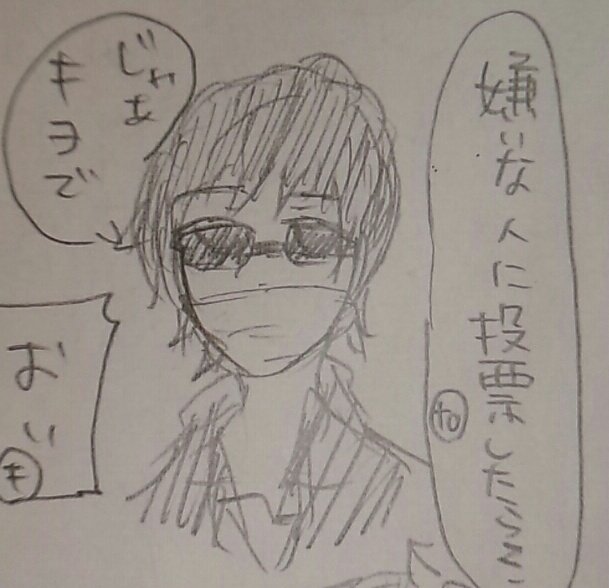 嫌いな人に投票したら
じゃあ
キヨで
おい
キ